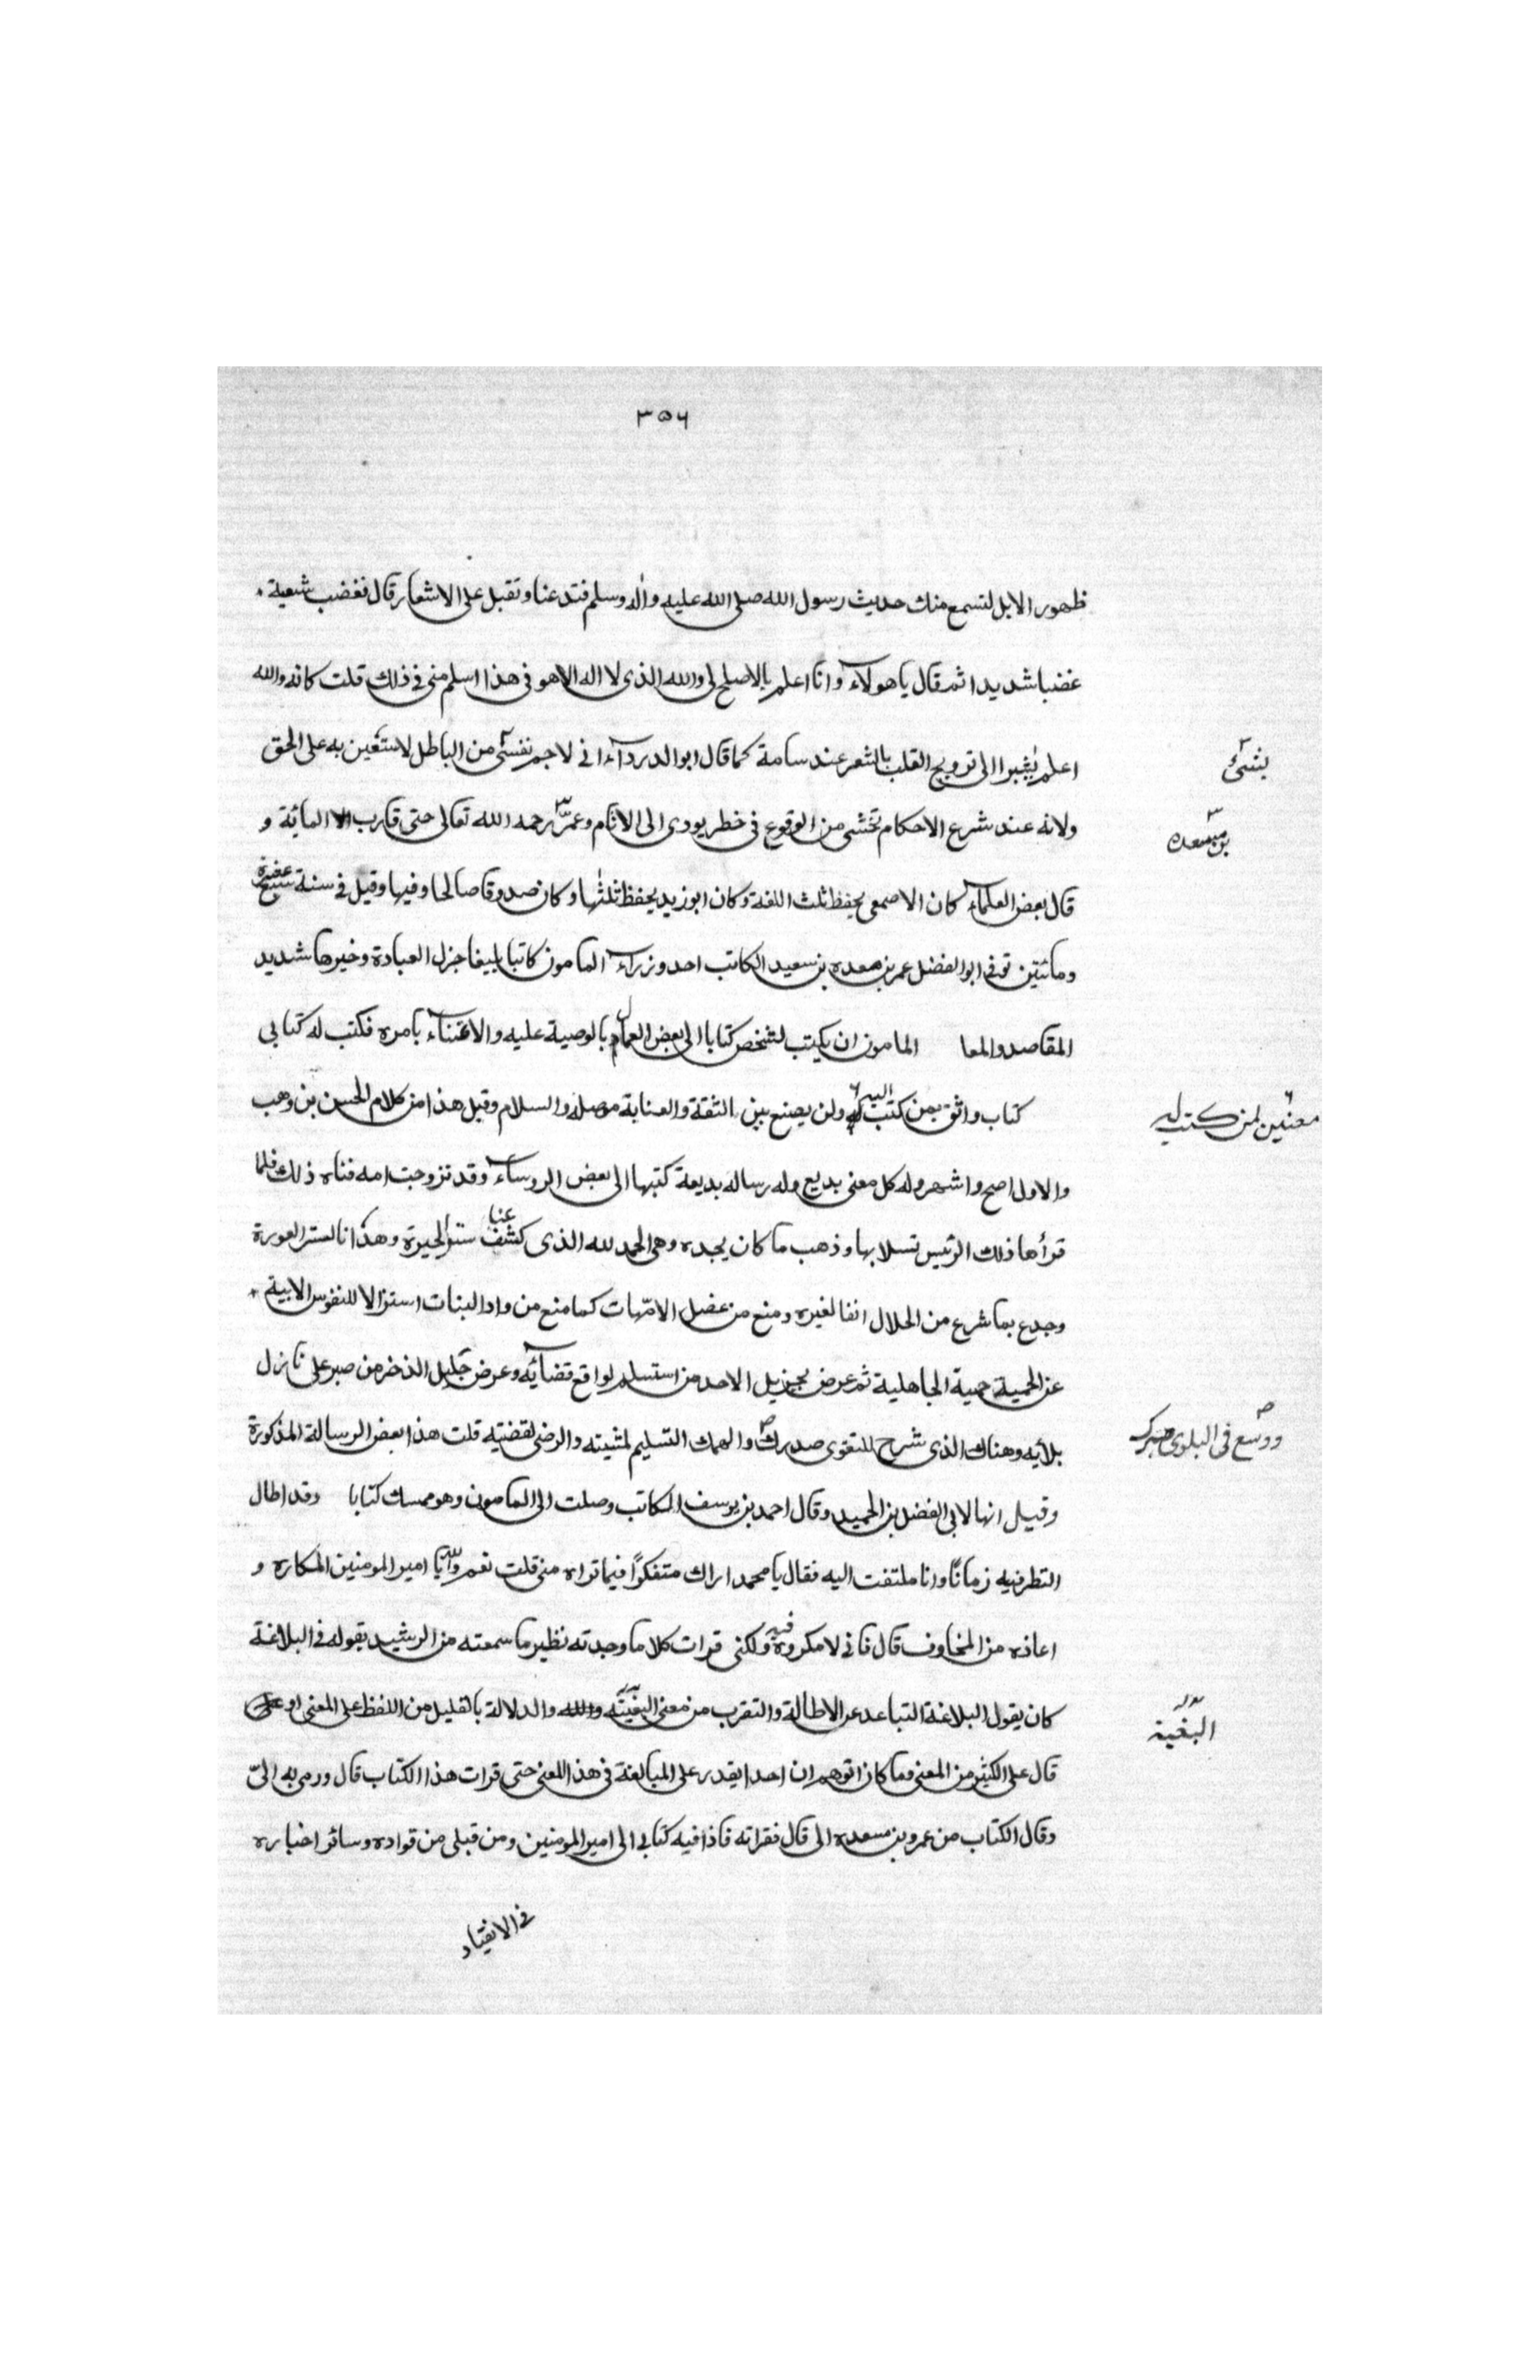 ٣٥٦
ظهور الابل لتسمع منك حديث رسول الله صلى الله عليه واله وسلم فتدعنا وتقبل على الاشعار قال فغضب شعبة
غضبا شديدا ثم قال يا هولاء وانا اعلم بالاصلح لى والله الذى لا اله الا هو فى هذا اسلم منى فى ذلك قلت كانه والله
اعلم يشيرا الى ترويح القلب بالشعر عند سامة كما قال ابو الدرداء انى لاجم نفسى من الباطل لاستعين به على الحق
بشئ
ولانه عند شرع الاحكام تخشى من الوقوع فى خطر يودى الى الاثام وعمر رحمه الله تعالى حتى قارب المائة و
بن مسعده
قال بعض العلماء كان الاصمعى يحفظ ثلث اللغة وكان ابو زيد يحفظ ثلثها وكان صدوقا صالحا وفيها وقيل فى سنة سبع عشرة
ومائتين توفى ابو الفضل عمر بن معده بن سعيد الكاتب احد وزراء المامون كاتبا بليغا جزل العبادة وخيرها شديد
المقاصد والمعا المامون ان يكتب لشخص كتابا الى بعض العمال بالوصية عليه والاعتناء بامره فكتب له كتابى
كتاب واثق بمن كتب اليه ولن يصنع بين الثقة والعناية موصله والسلام وقيل هذا من كلام الحسن بن وهب
معنين لمن كتب له
والاول اصح واشهر وله كل معنى بديع وله رساله بديعة كتبها الى بعض الروساء وقد تزوجت امه فناه ذلك فلما
قرأها ذلك الرئيس تسلا بها وذهب ما كان يجده وهى الحمد لله الذى كشف عنا ستر الحيرة وهدانا لستر العورة
وجدع بما شرع من الحلال انفا لغيره ومنع من عضل الامهات كما منع من واد البنات استنزالا للنفوس الابية
عن الحمية حمية الجاهلية ثم عرض بجزيل الاحد من استسلم لواقع قضائه وعرض جليل الذخر من صبر على نازل
بلائه وهناك الذى شرح للتقوى صدرك والهمك التسليم لمشيته والرضى لقضيته قلت هذا بعض الرسالة المذكورة
ووسع فى البلوى صبرك
وقيل انها لابى الفضل بن الحميد وقال احمد بن يوسف الكاتب وصلت الى المامون وهو ممسك كتابا وقد اطال
التطر فيه زمانا وانا ملتفت اليه فقال يا محمد اراك متفكرا فيما تراه منى قلت نعم والله يا امير المومنين المكاره و
اعاذه من المخاوف قال فانى لا مكروه فيه ولكنى قرات كلاما وجدته نظير ما سمعته من الرشيد يقوله فى البلاغة
كان يقول البلاغة التباعد عن الاطالة والتقرب من معنى البغيته والدلالة بالقليل من اللفظ على المعنى او
البغية
قال على الكثير من المعنى وما كان اتوهم ان احدا يقدر على المبالغة فى هذا المعنى حتى قرات هذا الكتاب قال ورمى به الى
وقال الكتاب من عمرو بن مسعده الى قال فقراته فاذا فيه كتابى الى امير المومنين ومن قبلى من قواده وسائر اخباره
فى الانقياد